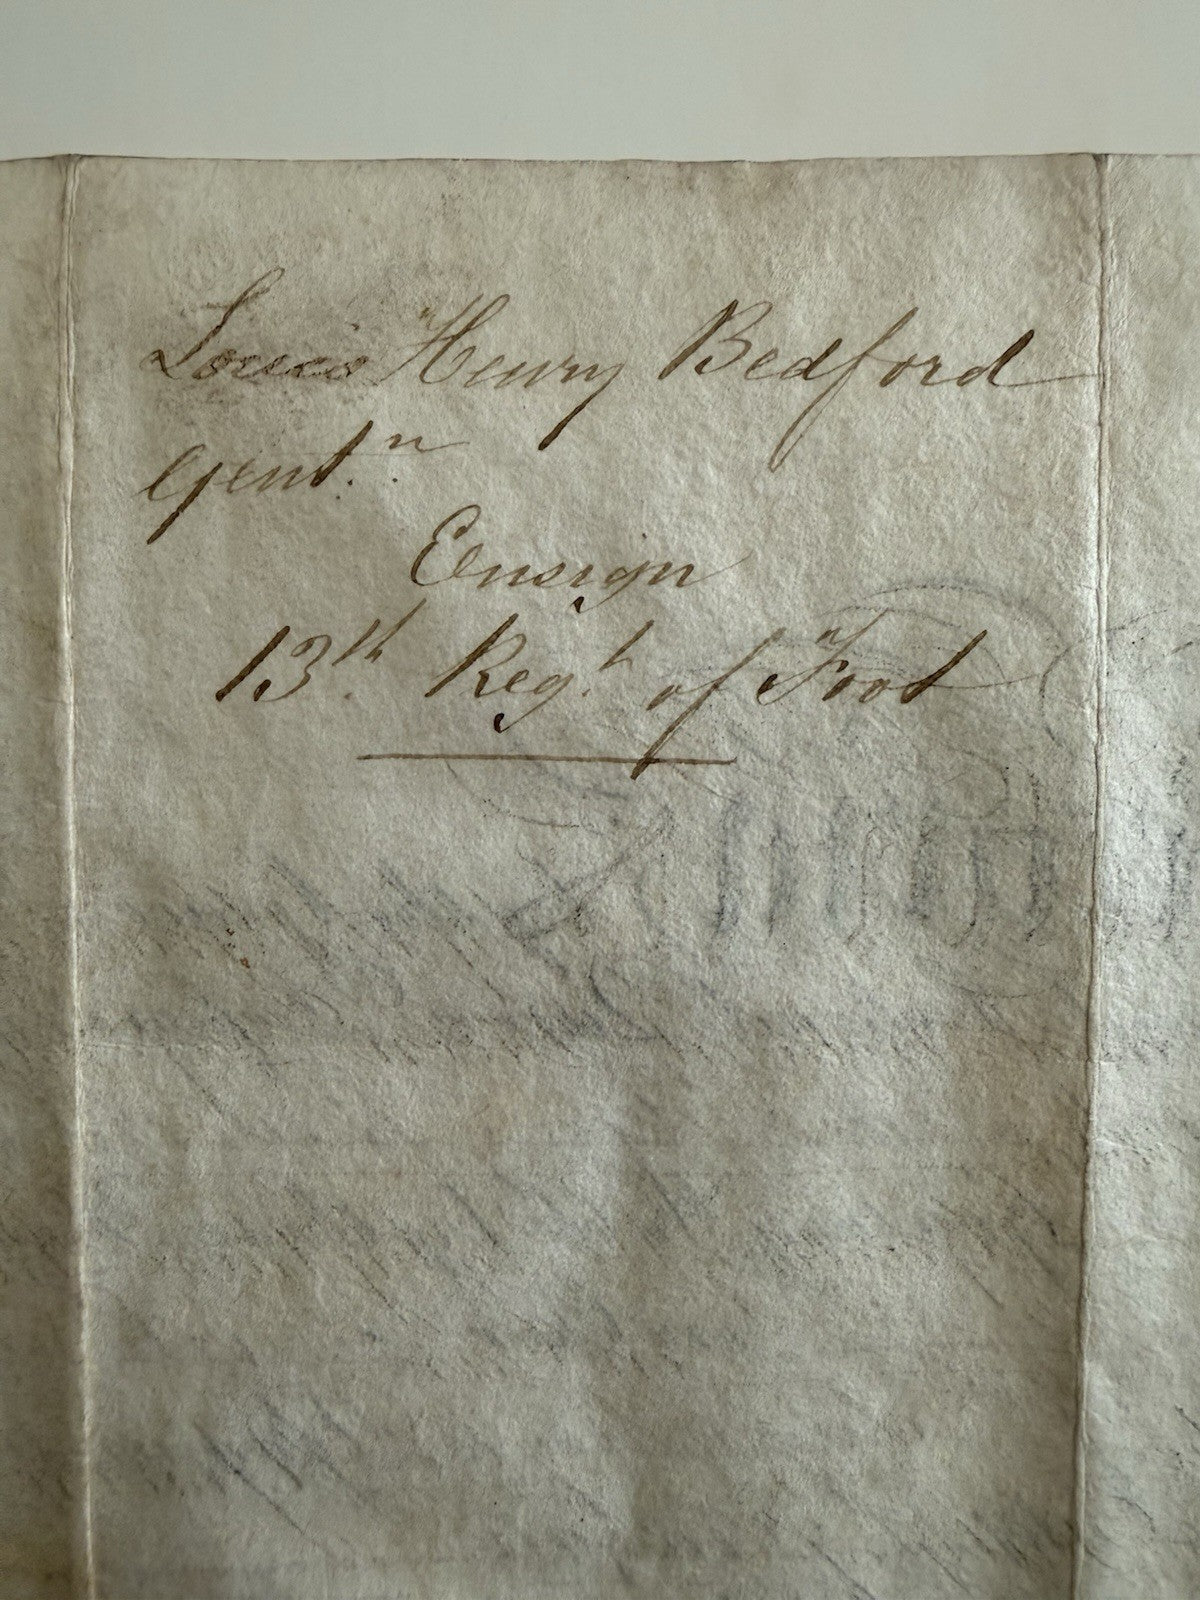 Louis Henry Bedford
Gent.n
Ensign
13th Regt. of Foot